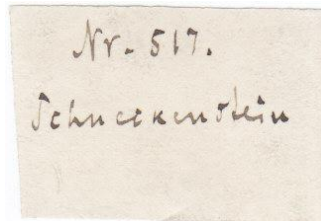 Nr. 517.
Schneckenstein